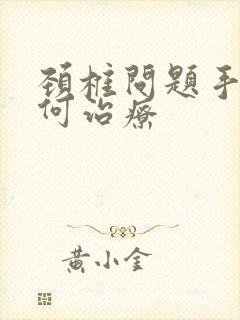 頚椎問題手
何治療
黃小金